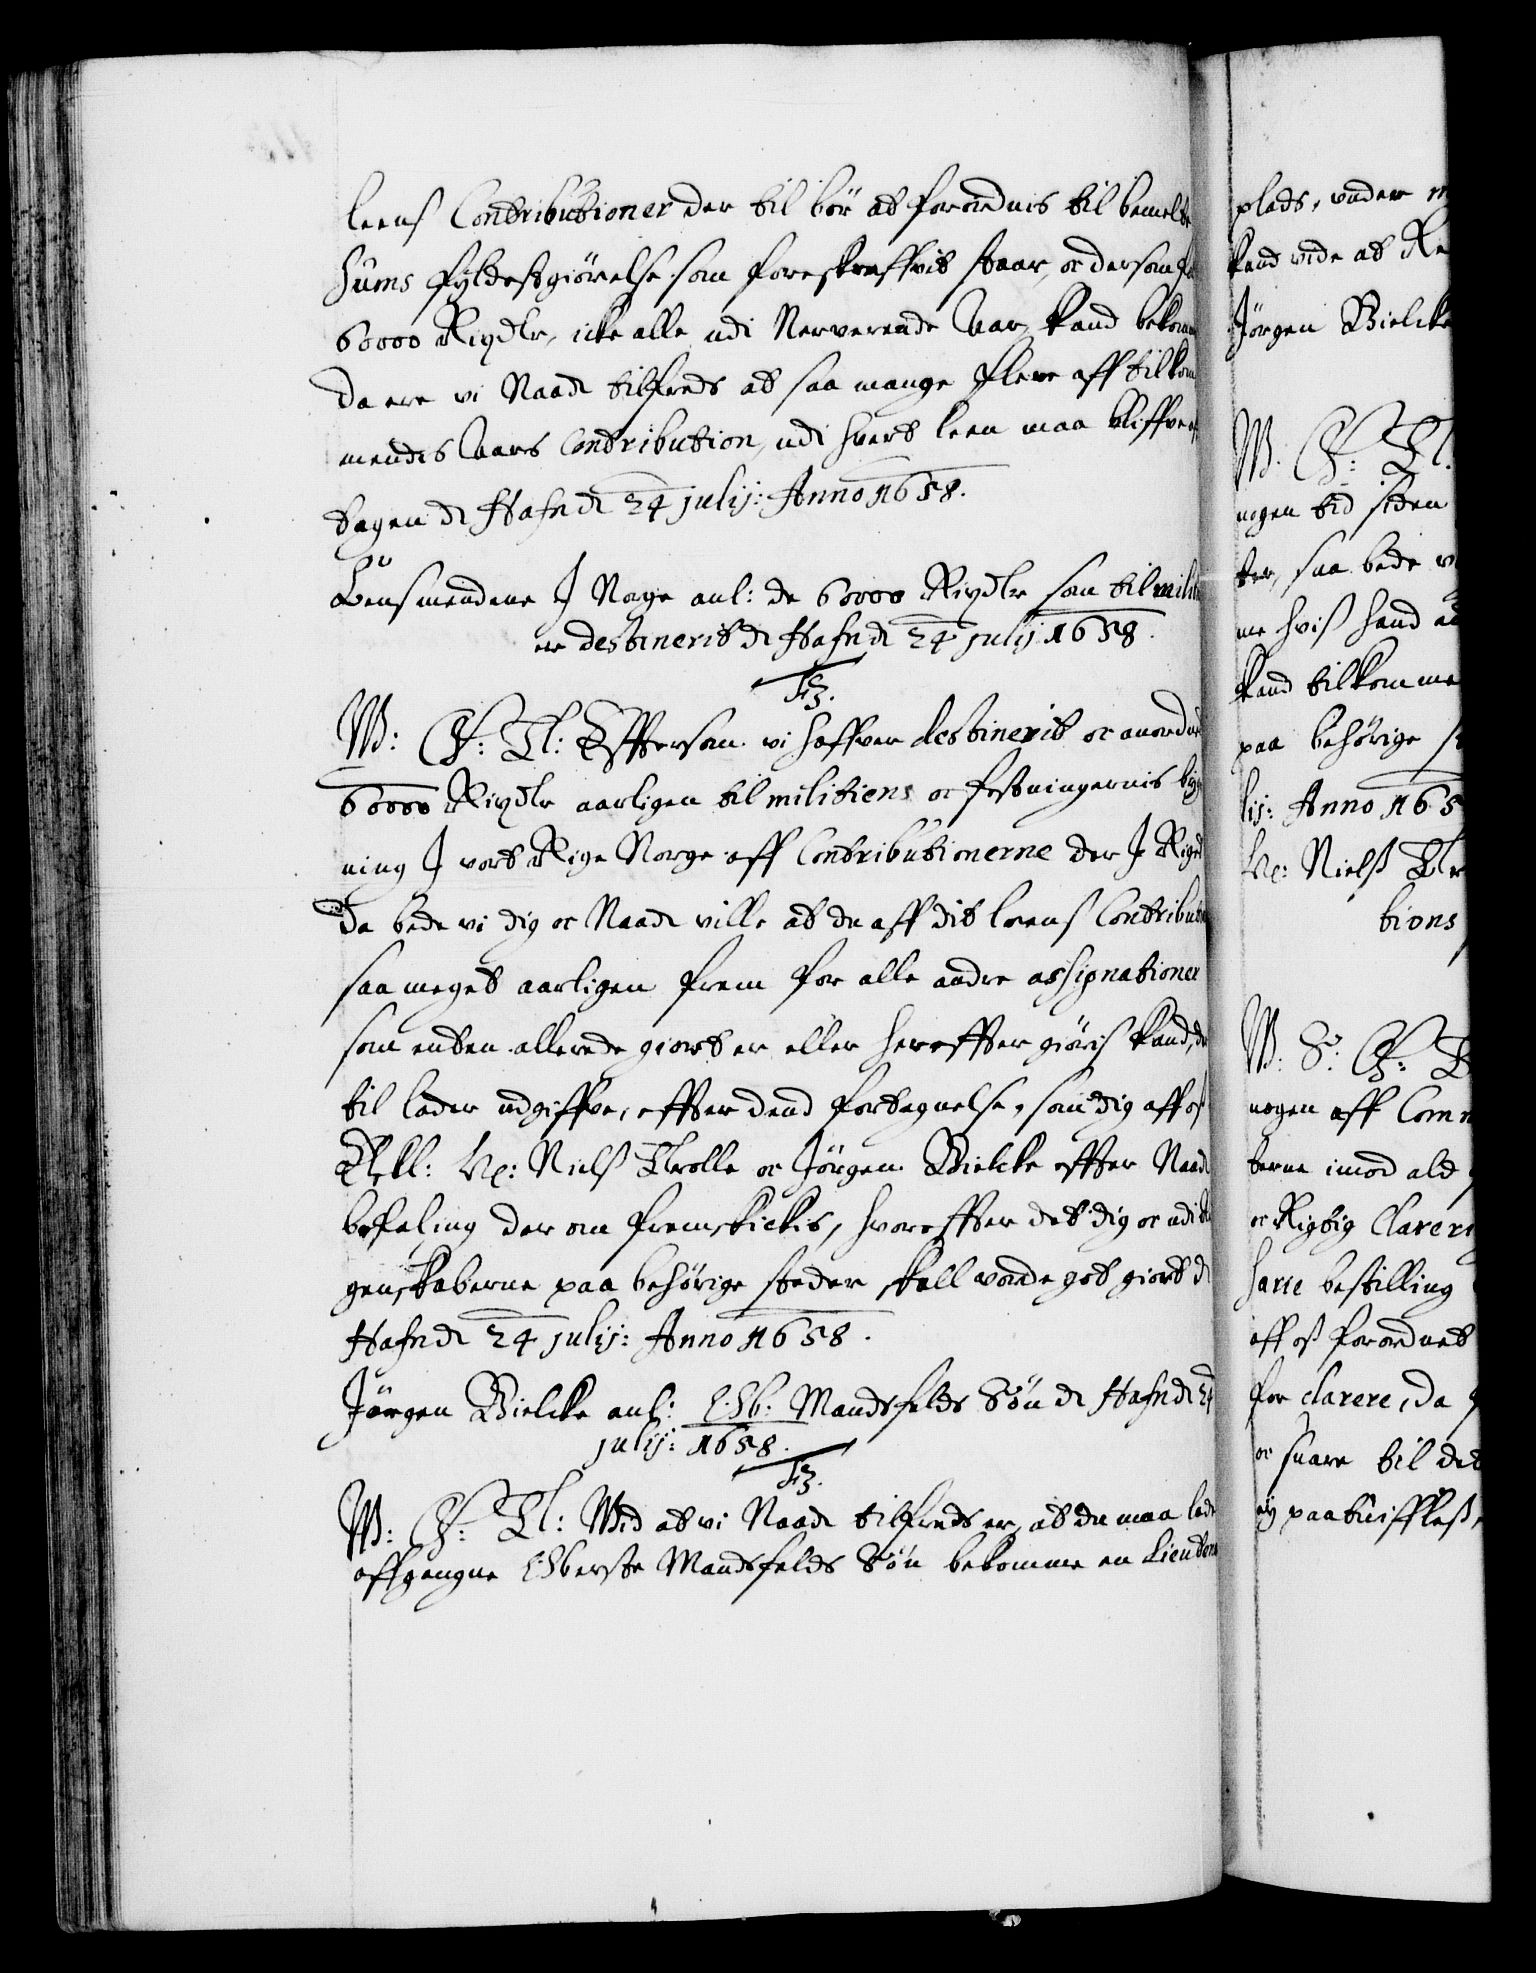 leens Contributioner der til bør at forordnis til bemelte
Sums fyldestgiørelse som foreskreffvit staar, oc dersom
60000 Rixdlr, icke alle udi Nerverende Aar, kand bekom
da ere vi Naadt tilfreds at saa mange flere aff tilkom
mendes Aars Contribution, udi hvert leen maa bliffve
tagen dt Hafn dt 24 julij: Anno 1658.
Lensmendene I Norge anl: de 60000 Rixdlr som til milit
er destinerit dt Hafn dt 24 julij 1658.
F3.
W: G: T: Effterson vi haffver destinerit oc anordn
60000 Rixdlr aarligen til militiens oc festningernis byg
ning I vort Rige Norge aff Contributionerne der I Riget
Da bede vi dig oc Naadt ville at du aff dit leens Contribut
saa meget aarligen frem for alle andre assignationer
som enten allerede giort er eller hereffter giøris kand, der
til lader udgiffve, effter dend fortegnelse, som dig aff os
Elskl: Hr: Niels Trolle oc Jørgen Bielcke effter Naadt
befaling der om fremskickis, hvoreffter det dig oc udi
genskaberne paa behørige steder skall vorde got giort dt
Hafn dt 24 julij: Anno 1658.
Jörgen Bielcke anl: Ob: Mandsfelds Søn dt Hafn dt 24
julij: 1658.
F3.
W: G: T: Wid at vi Naadt tilfreds er, at du maa lade
affgangne Oberste Mandsfelds Søn bekomme en Lieuten
plads, under
kand vide at Re
Jørgen Bielcke
W. G: T.
nogen tid siden
ter, saa bede vi
me hvis hand
kand tilkomme
paa behørige
lij: Anno 165
Hr: Niels Tr
tions
W. S: G: T
nogen aff Com
terne imod ald
oc Rigtig Clarer
harre bestilling
aff os forordnet
for clarere, da
oc suare til det
ey paatuiffles,